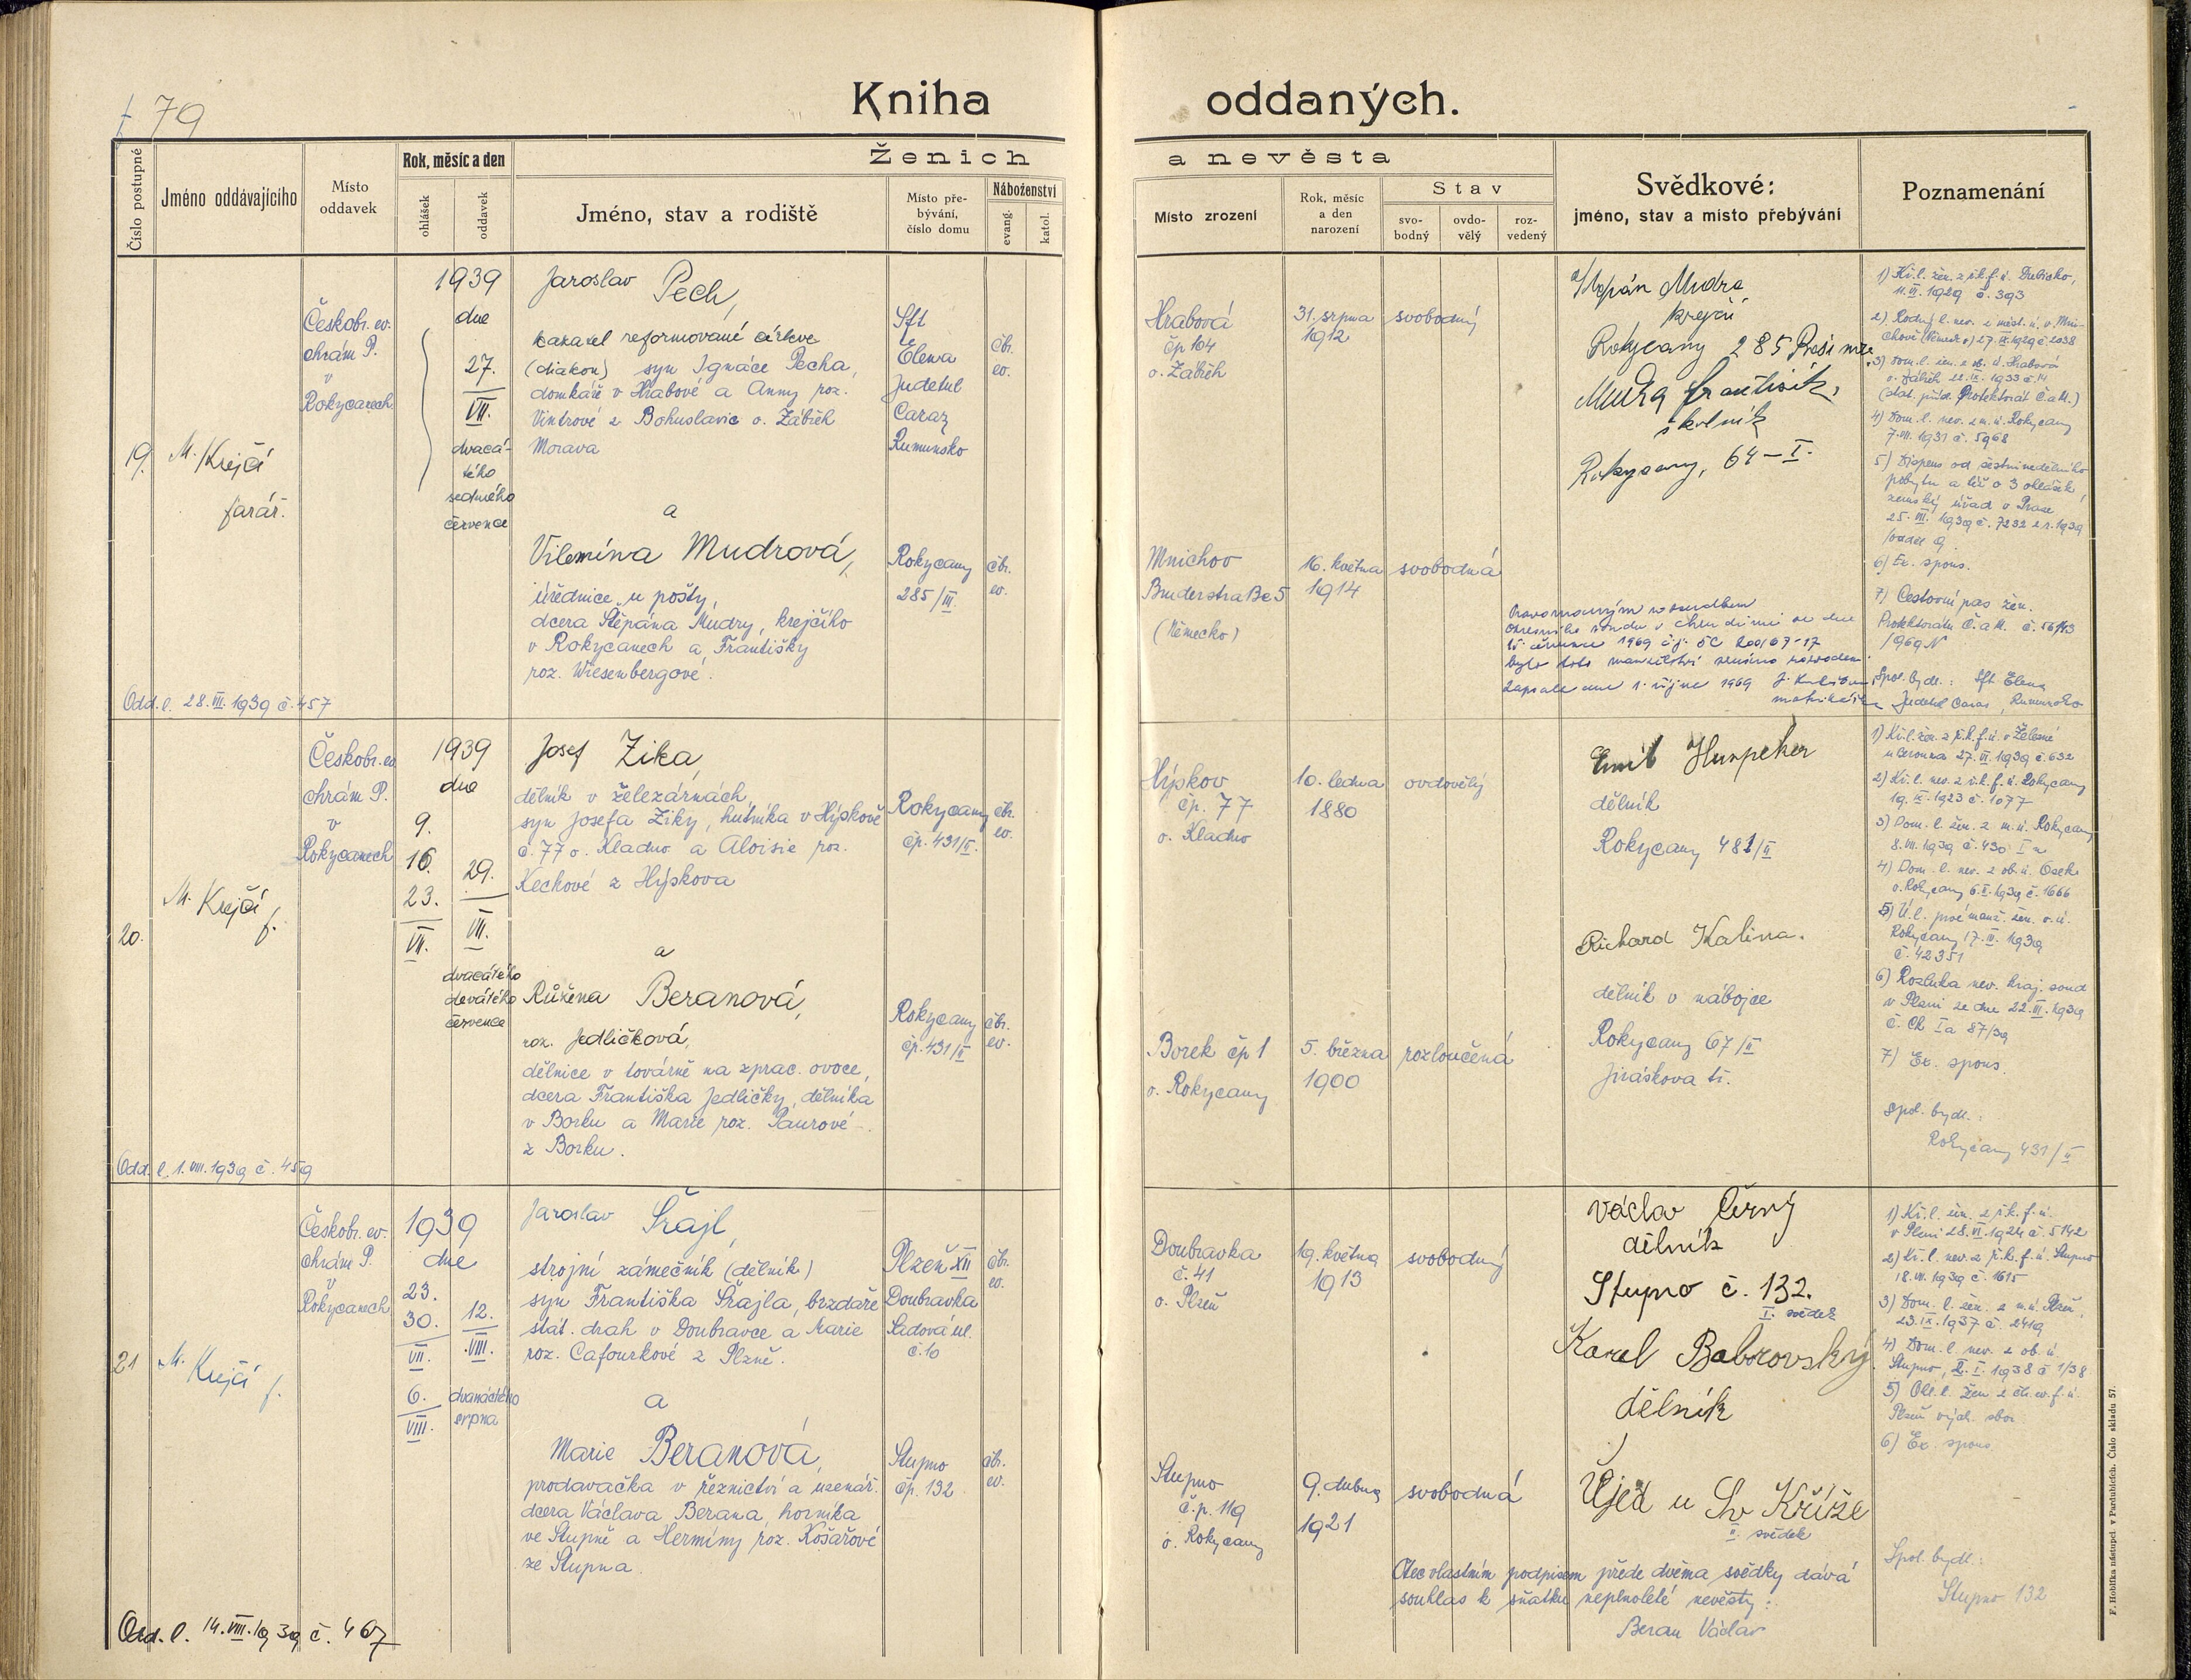 79
Kniha oddaných.
Číslo postupné
Jméno oddávajícího
Místo oddavek
Rok, měsíc a den
ohlášek
oddavek
Ženich
a nevěsta
Jméno, stav a rodiště
Místo pře-
bývání,
číslo domu
Náboženství
evang.
katol.
Místo zrození
Rok, měsíc
a den
narození
Stav
svo-
bodný
ovdo-
vělý
roz-
vedený
Svědkové:
jméno, stav a místo přebývání
Poznamenání
19.
M. Krejčí
farář.
Českobr. ev.
chrám P.
v
Rokycanech
1939
dne
27.
VII.
dvacá-
tého
sedmého
července
Jaroslav Pech,
kazatel reformované církve
(diakon) syn Ignáce Pecha,
domkáře v Hrabové a Anny roz.
Vintrové z Bohuslavic o. Zábřeh
Morava
a
Vilemína Mudrová,
úřednice u pošty,
dcera Štěpána Mudry, krejčího
v Rokycanech a Františky
roz. Wiesenbergové.
Sft
Elena
Judetul
Caraz
Rumunsko
čbr.
ev.
Rokycany
285/III.
čbr.
ev.
Hrabová
čp 104
o. Zábřeh
31. srpna
1912
svobodný
Mnichov
Bruderstraße 5
(Německo)
16. května
1914
svobodná
Štěpán Mudra
krejčí
Rokycany 285
Mudra František,
školník
Rokycany, 64-I.
Pravomocným rozsudkem
okresního soudu v Chrudimi ze dne
1969
bylo toto manželství zrušeno rozvodem.
Zapsáno dne 1. října 1969
matrikář
1) Kř. l. žen. z ř. k. f. ú.
11. VI. 1929 č. 393
2) Rodný l. nev. z měst. ú. v Mni-
chově (Německo) 27. IX. 1929 č. 2038
3) Dom. l. žen. z ob. ú. Hrabová
o. Zábřeh 22. IX. 1933 č. 14
(dat. přísl. Protektorát Č. a M.)
4) Dom. l. nev. z m. ú. Rokycany
7. VII. 1931 č. 5968
5) Dispens od šestinedělního
pobytu a též o 3 ohlášek,
zemský úřad v Praze
25. VII. 1939 č. 7232 z r. 1939
/odděl. 9
6) Ex. spons.
7) Cestovní pas žen.
Protektorátu Č. a M.
/1969 N
Spol. bydl.: Sft Elena
Judetul Caras, Rumunsko
Odd. l. 28. VII. 1939 č. 457
20.
M. Krejčí
f.
Českobr. ev.
chrám P.
v
Rokycanech
1939
dne
9.
16.
23.
VII.
29.
VII.
dvacátého
devátého
července
Josef Zika,
dělník v železárnách
syn Josefa Ziky, hutníka v Hýskově
č. 77 o. Kladno a Aloisie roz.
Kechové z Hýskova
a
Růžena Beranová,
roz. Jedličková,
dělnice v továrně na zprac. ovoce,
dcera Františka Jedličky, dělníka
v Borku a Marie roz. Paurové
z Borku.
Rokycany
čp. 431/II.
čbr.
ev.
Rokycany
čp. 431/II
čbr.
ev.
Hýskov
čp. 77
o. Kladno
10. ledna
1880
ovdovělý
Borek čp 1
o. Rokycany
5. března
1900
rozloučená
Emil
dělník
Rokycany 481/II
Richard Kalina.
dělník v nábojce
Rokycany 67/II
Jiráskova tř.
1) Kř. l. žen. z ř. k. f. ú. v Železné
u Berouna 27. VI. 1939 č. 632
2) Kř. l. nev. z ř. k. f. ú. Rokycany
19. IX. 1923 č. 1077
3) Dom. l. žen. z m. ú. Rokycany
8. VII. 1939 č. 430
4) Dom. l. nev. z ob. ú. Osek
o. Rokycany 6. I. 1939 č. 1666
5) Ú. l. prvé manž. žen. o. ú.
Rokycany 17. III. 1939
č. 42351
6) Rozluka nev. kraj. soud
v Plzni ze dne 22. III. 1939
č. Ck Ia 87/39
7) Ex. spons.
Spol. bydl.:
Rokycany 431/II
Odd. l. 1. VIII. 1939 č. 459
21
M. Krejčí
f.
Českobr. ev.
chrám P.
v
Rokycanech
1939
dne
23.
30.
VII.
6.
VIII.
12.
VIII.
dvanáctého
srpna
Jaroslav Šrajl,
strojní zámečník (dělník)
syn Františka Šrajla, brzdaře
stát. drah v Doubravce a Marie
roz. Cafourkové z Plzně.
a
Marie Beranová,
prodavačka v řeznictví a uzenář.
dcera Václava Berana, horníka
ve Stupně a Hermíny roz. Košařové
ze Stupna.
Plzeň XII
Doubravka
Sadová ul.
č. 10
čbr.
ev.
Stupno
čp. 132
čbr.
ev.
Doubravka
č. 41
o. Plzeň
19. května
1913
svobodný
Stupno
č.p. 119
o. Rokycany
9. dubna
1921
svobodná
Václav Černý
dělník
Stupno č. 132.
I. svědek
Karel Bobrovský
dělník
Újezd u Sv Kříže
II. svědek
Otec vlastním podpisem přede dvěma svědky dává
souhlas k sňatku neplnoleté nevěsty:
Beran Václav
1) Kř. l. žen. z ř. k. f. ú.
v Plzni 28. VI. 1924 č. 5142
2) Kř. l. nev. z ř. k. f. ú. Stupno
18. VII. 1939 č. 1615
3) Dom. l. žen. z m. ú. Plzeň,
23. IX. 1937 č. 2419
4) Dom. l. nev. z ob. ú.
Stupno, I. 1938 č 1/38
5) Ohl. l. žen. z čb. ev. f. ú.
Plzeň vých. sbor
6) Ex. spons.
Spol. bydl.:
Stupno 132
Odd. l. 14. VIII. 1939 č. 467
F. Hoblíka nástupci v Pardubicích. Číslo skladu 57.